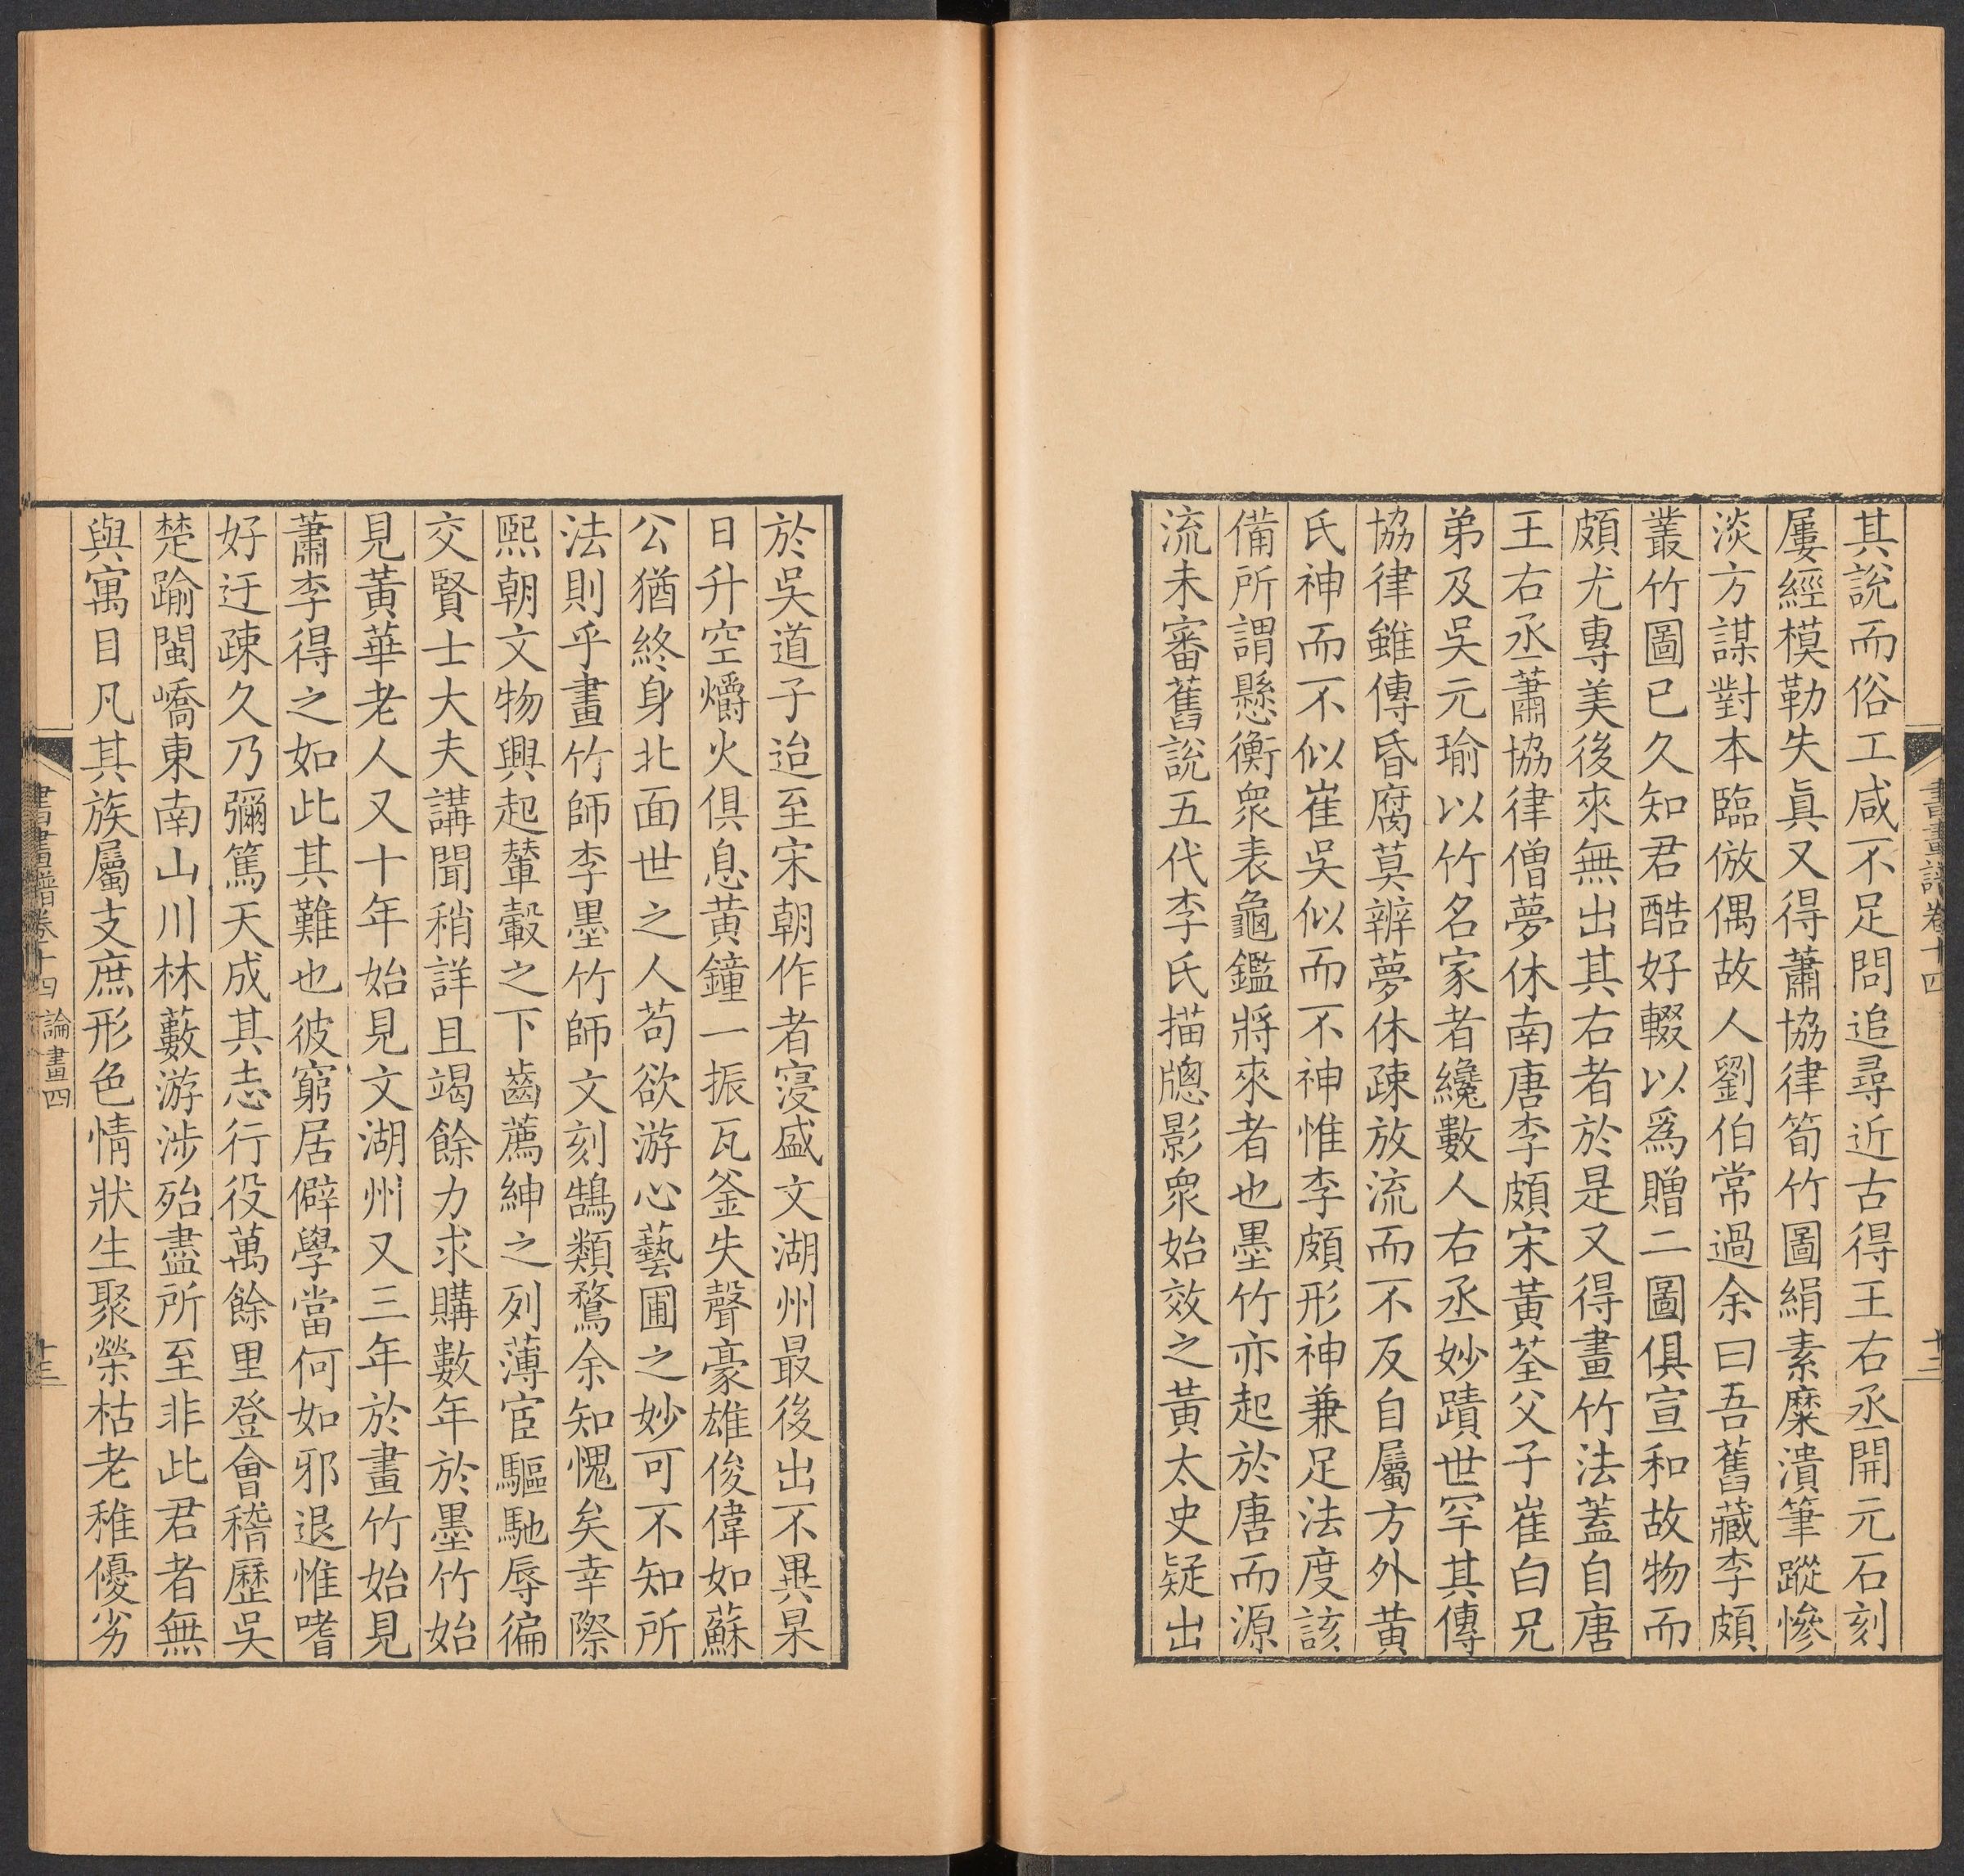 其說而俗工咸不足問追尋近古得王右丞開元石刻
屢經模勒失眞又得蕭協律筍竹圖絹素糜潰筆蹤慘
淡方謀對本臨倣偶故人劉伯常過余曰吾舊藏李頗
叢竹圖已久知君酷好輟以爲贈二圖俱宣和故物而
頗尤專美後來無出其右者於是又得畫竹法蓋自唐
王右丞蕭協律僧夢休南唐李頗宋黃荃父子崔白兄
弟及吳元瑜以竹名家者纔數人右丞妙蹟世罕其傳
協律雖傳昏腐莫辨夢休疎放流而不反自屬方外黃
氏神而不似崔吳似而不神惟李頗形神兼足法度該
備所謂懸衡衆表龜鑑將來者也墨竹亦起於唐而源
流未審舊說五代李氏描牕影衆始效之黃太史疑出
書畫譜卷十四
十三
於吳道子迨至宋朝作者寖盛文湖州最後出不異杲
日升空爝火俱息黃鐘一振瓦釜失聲豪雄俊偉如蘇
公猶終身北面世之人苟欲游心藝圃之妙可不知所
法則乎畫竹師李墨竹師文刻鵠類鶩余知愧矣幸際
熙朝文物興起輦轂之下齒薦紳之列薄宦驅馳辱徧
交賢士大夫講聞稍詳且竭餘力求購數年於墨竹始
見黃華老人又十年始見文湖州又三年於畫竹始見
蕭李得之如此其難也彼窮居僻學當何如邪退惟嗜
好迂疎久乃彌篤天成其志行役萬餘里登會稽歷吳
楚踰閩嶠東南山川林藪游涉殆盡所至非此君者無
與寓目凡其族屬支庶形色情狀生聚榮枯老稚優劣
書畫譜卷十四 論畫四
十三